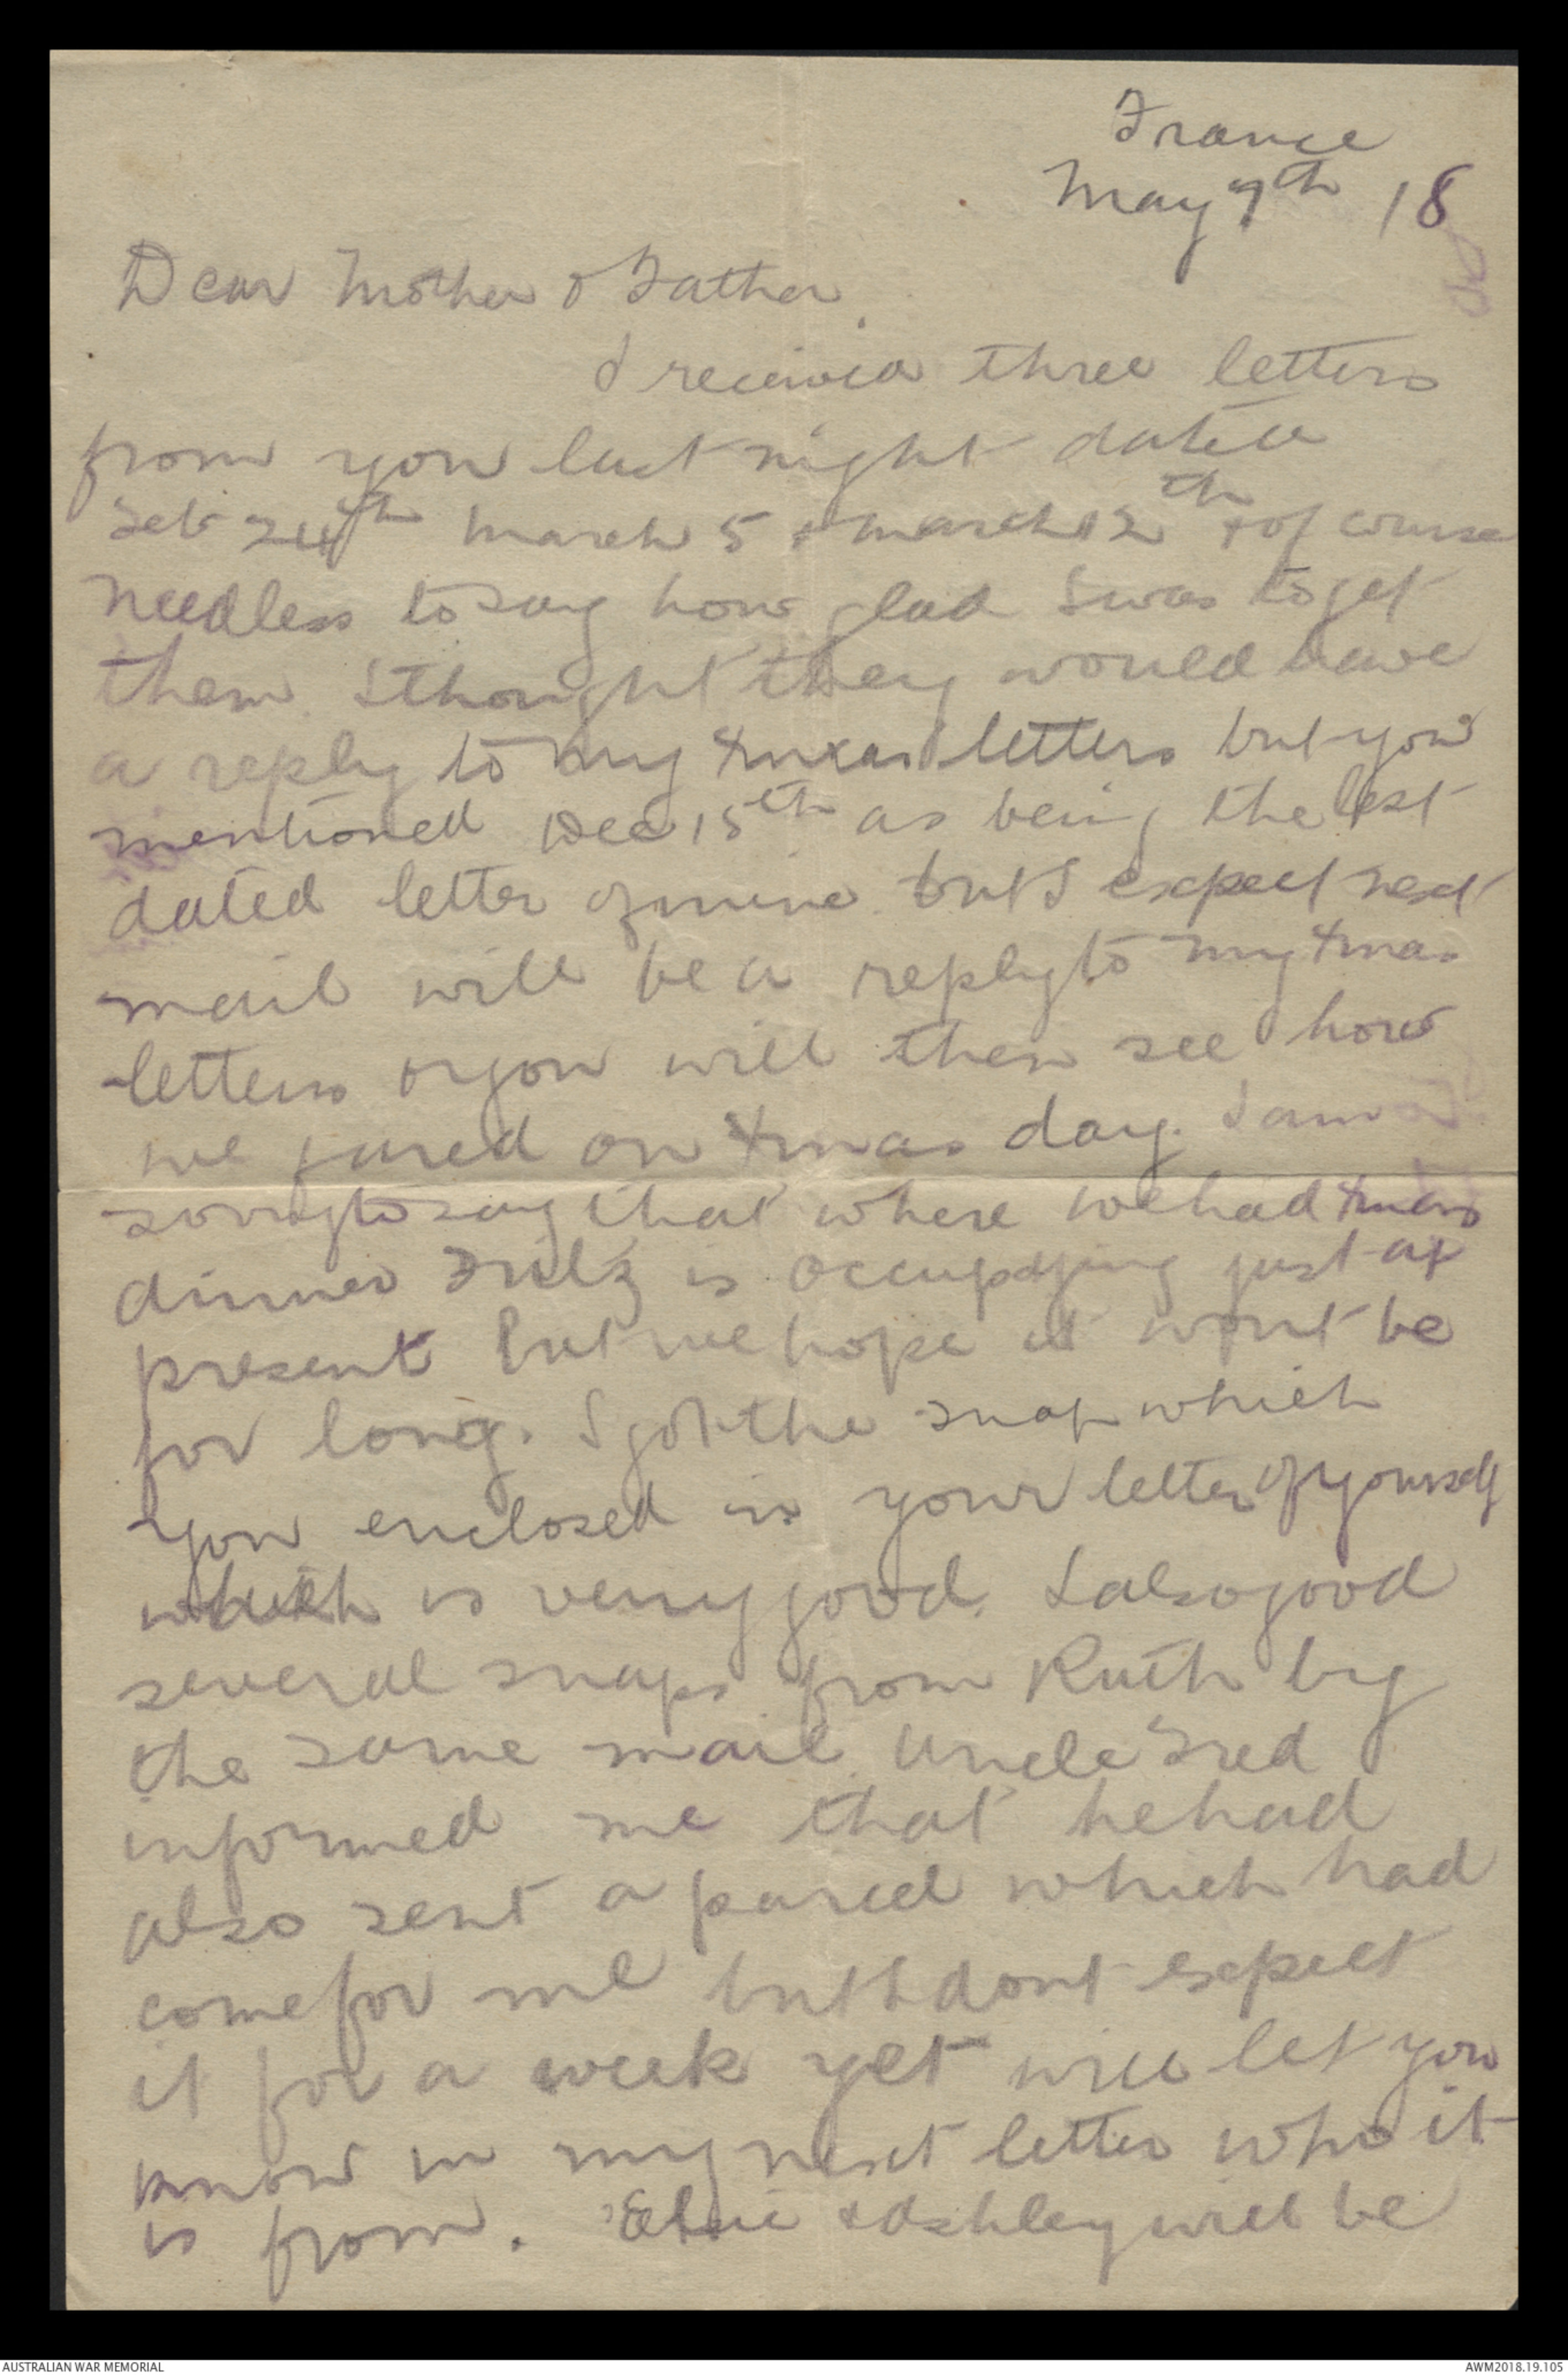 France
May 9th 18
Dear Mother & Father.
I received three letters
from you last night dated
Feb 24th March 5 & march 12th & of course
needless to say how glad I was to get
them. I thought they would have
a reply to my Xmas letters but you
mentioned Dec 15th as being the last
dated letter of mine but I expect next
mail will be a reply to my Xmas
letters & you will then see how
we fared on Xmas day. I am
sorry to say that where we had Xmas
dinner Fritz is occupying just at
present but we hope it wont be
for long. I got the snap which
you enclosed in your letter of yourself
which is very good. I also good
several snaps from Ruth by
the same mail. Uncle Fred
informed me that he had
also sent a parcel which had
come for me but I dont expect
it for a week yet will let you
know in my next letter who it
is from. Elsie & Ashley will be
AUSTRALIAN WAR MEMORIAL
AWM2018.19.105